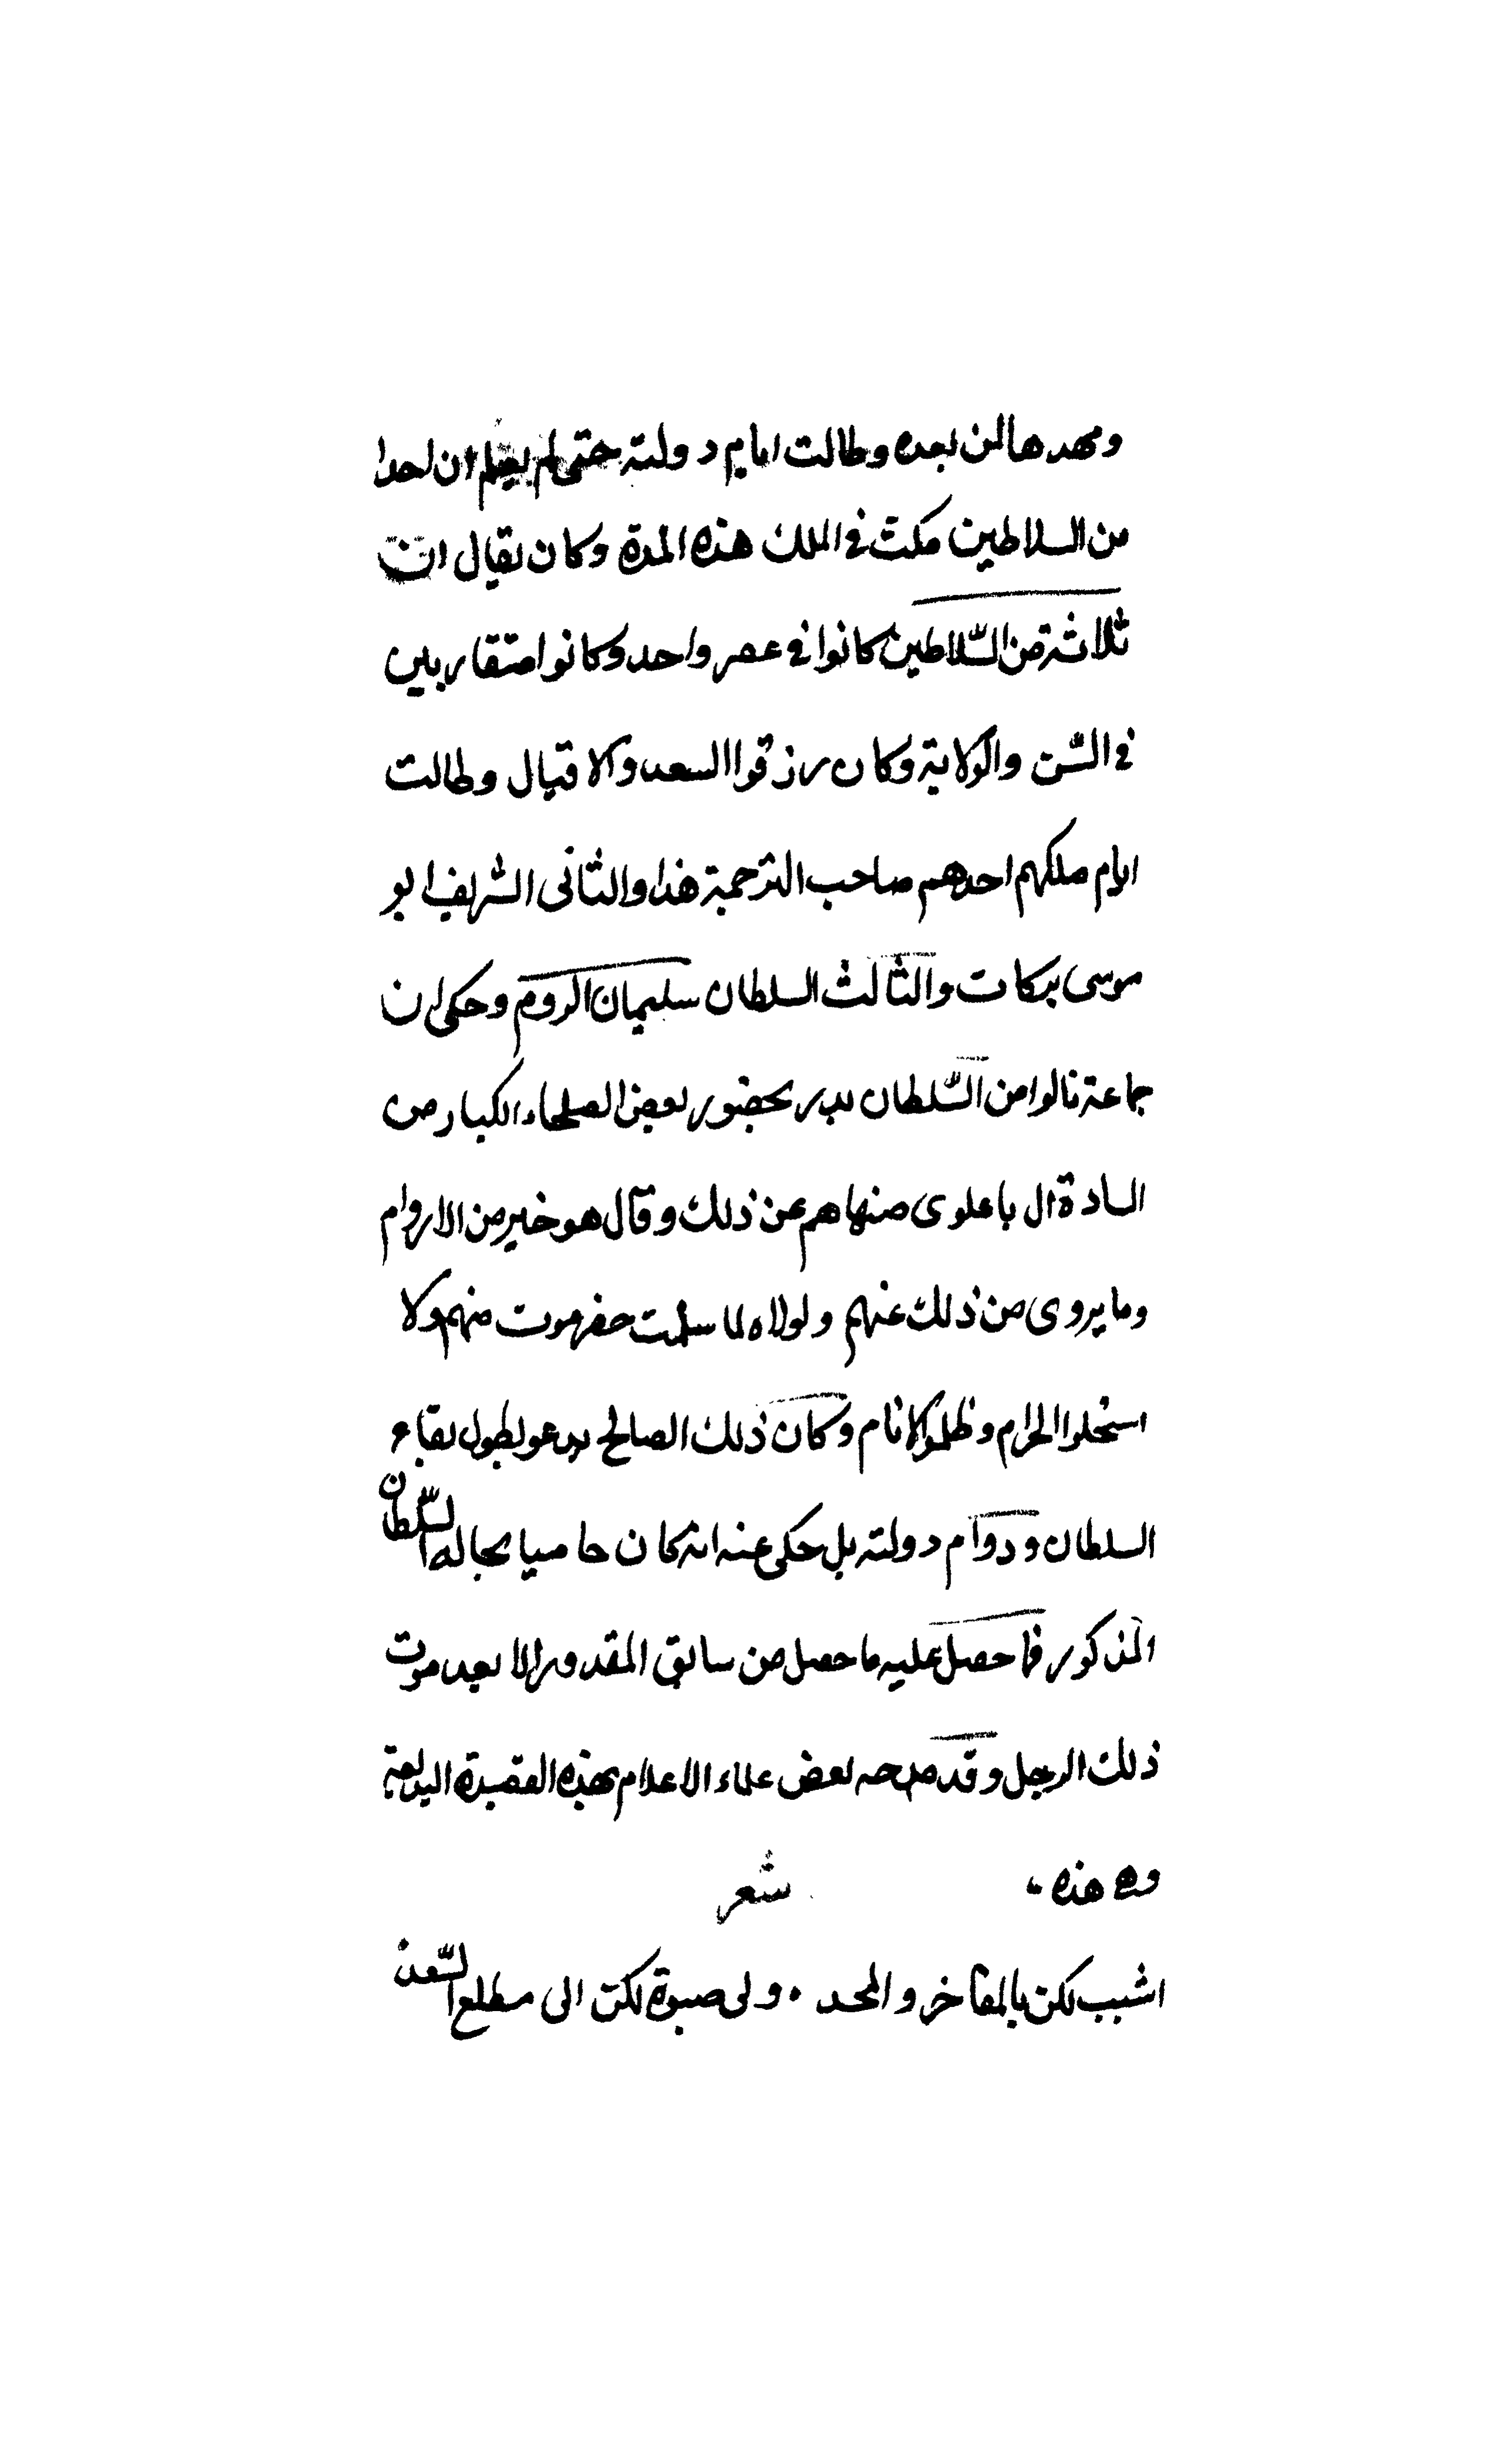 ومهدها لمن بعده وطالت ايام دولته حتى لم يعلم ان احدا
من السلاطين مكث في الملك هذه المدة وكان يقال ان
ثلاثة من السّلاطين كانوا في عصر واحد وكانوا متقاربين
في السّن والولاية وكان رزقوا السعد والاقبال وطالت
ايام ملكهم احدهم صاحب الترجمة هذا والثانى الشريف ابو
موسى بركات والثالث السلطان سليمان الروم وحكى ان
جماعة نالوا من السّلطان بدر بحضور بعض الصلحاء الكبار من
السادة ال باعلوى منهاهم عن ذلك وقال هو خير من الاروام
وما يروى من ذلك عنهم ولولاه لما سلمت حضرموت منهم ولا
استحلوا الحرام وظلموا الانام وكان ذلك الصالح يدعو بطول بقاء
السلطان ودوام دولته بل حكى عنه انه كان حاميا بحاله السّلطان
المذكور فما حصل عليه ما حصل من سابق المقدور الا بعد موت
ذلك الرجل وقد مدحه بعض علماء الاعلام بهذه القصيدة البديعة
وهي هذه
شعر
اشبب لكن بالمفاخر والمجد . ولى صبوة لكن الى مطلع السّعد